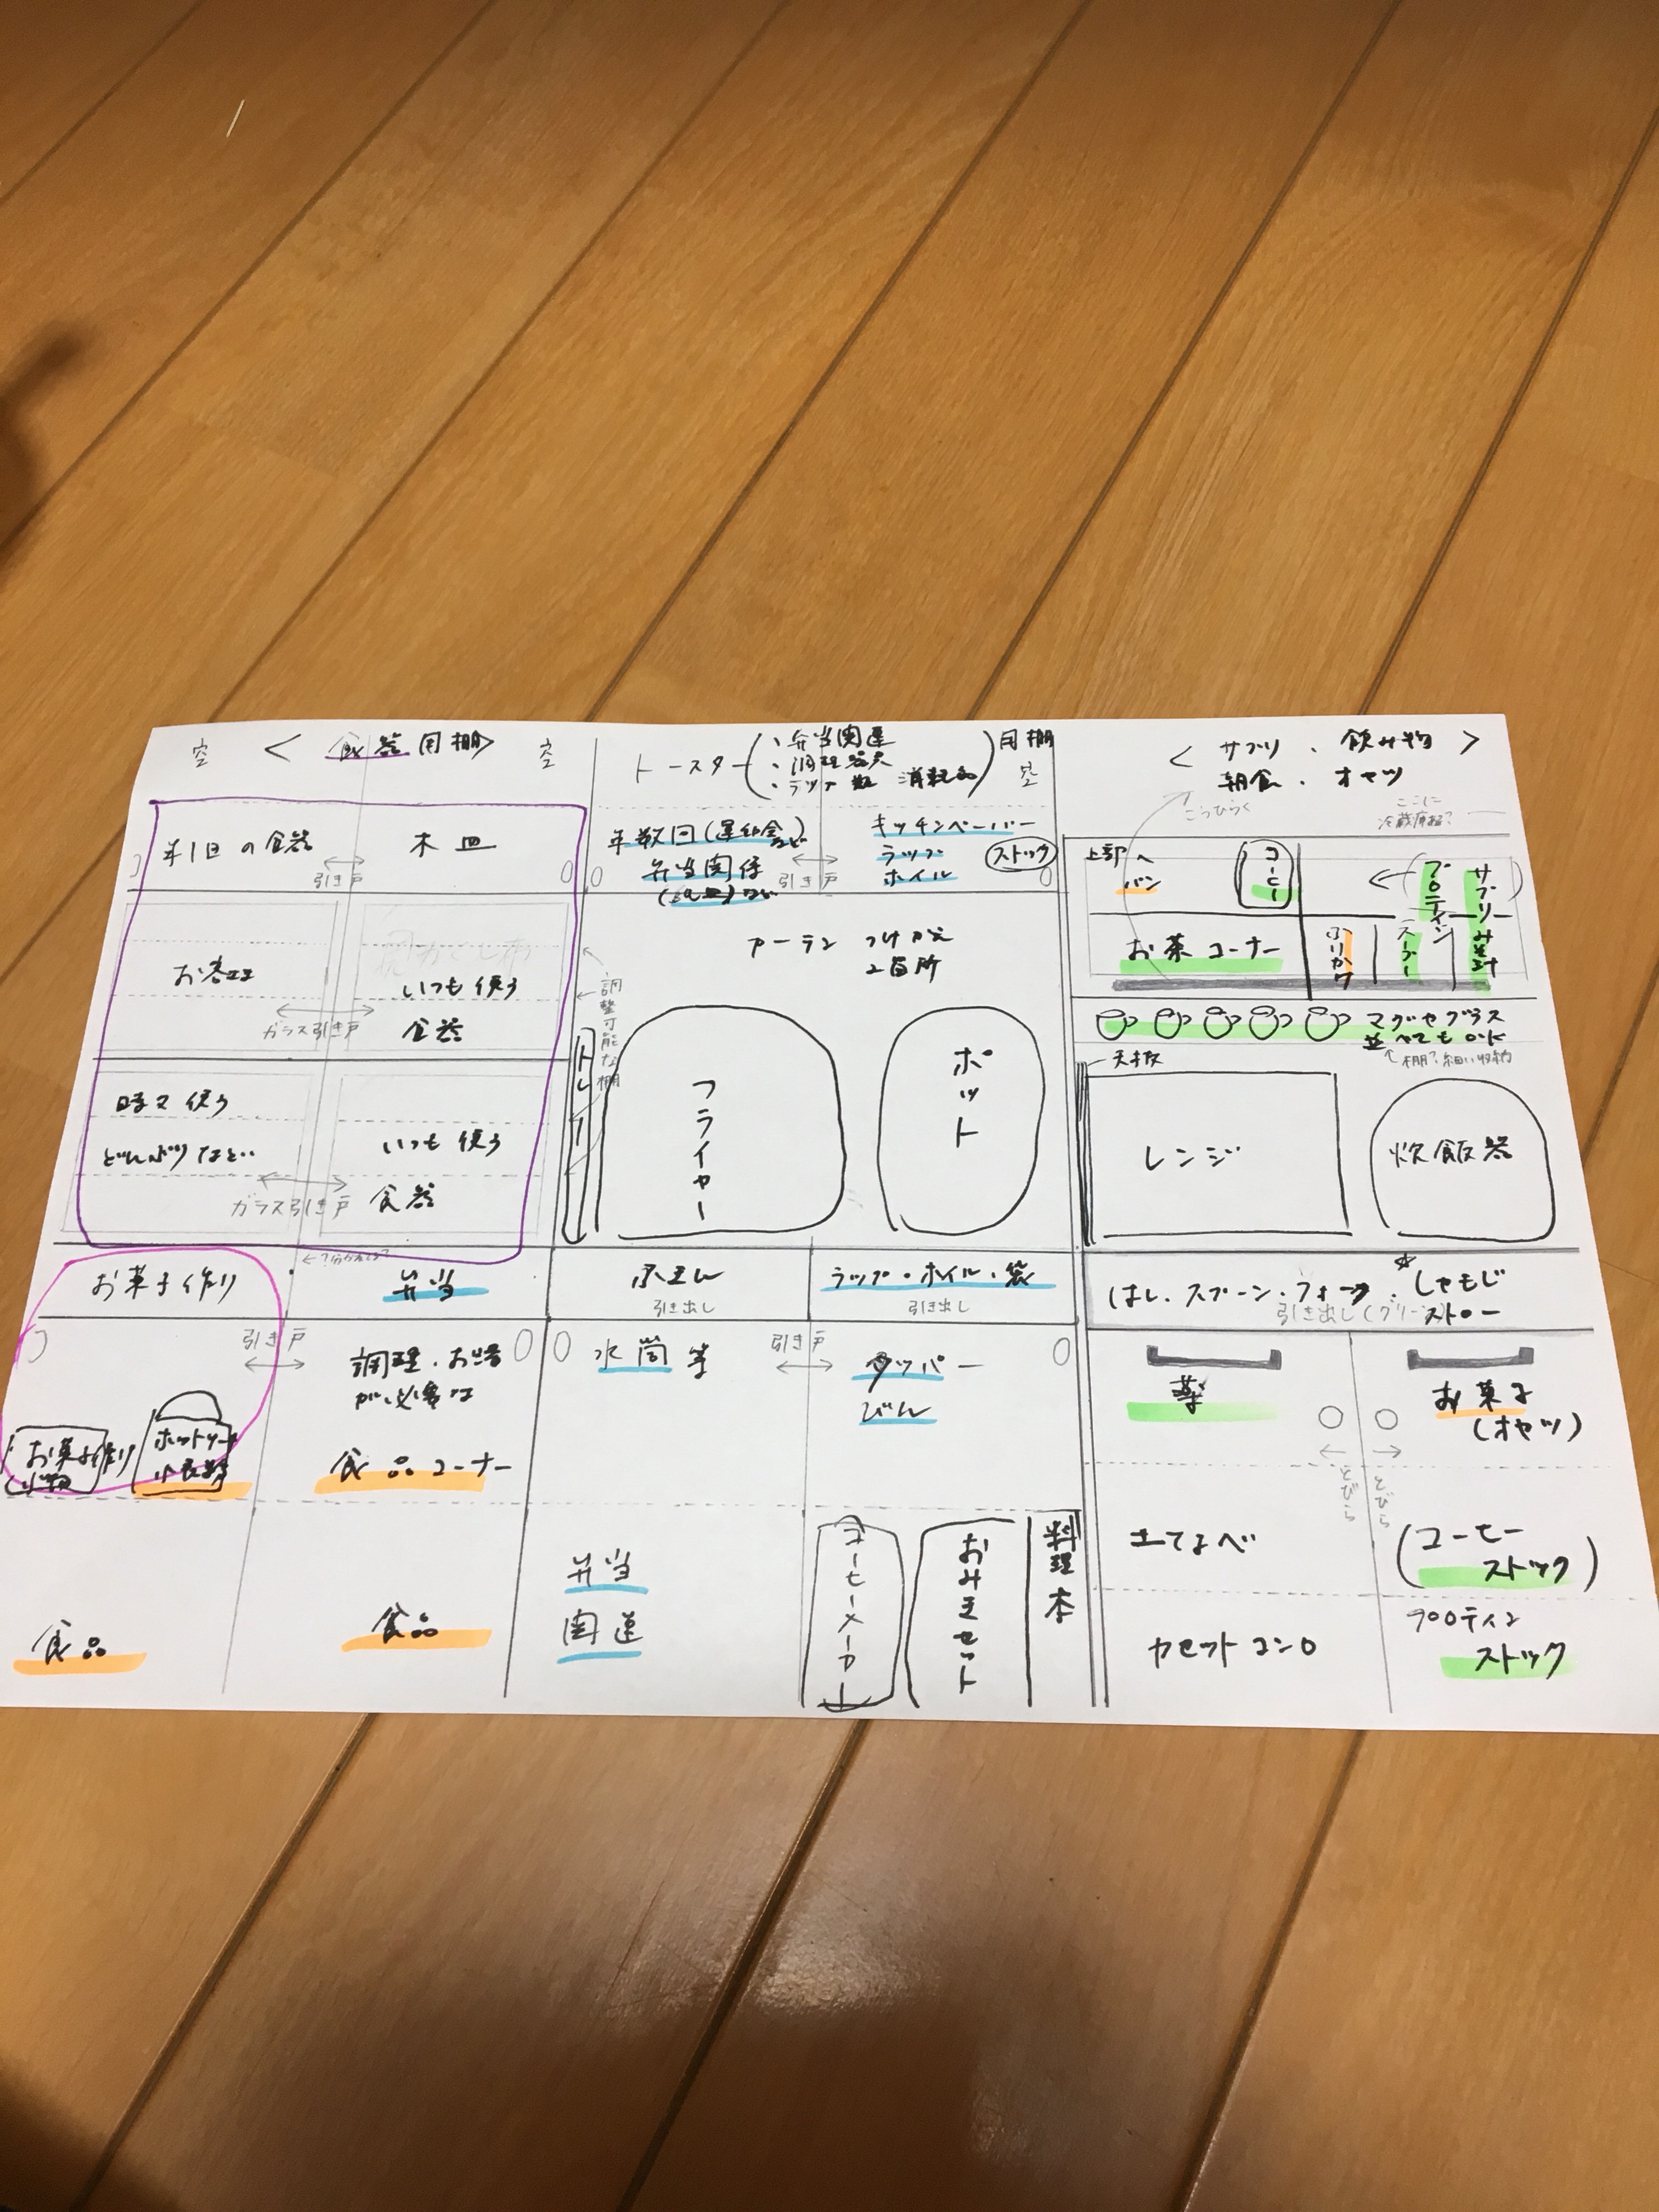 空
< 食器用棚>
空
年1回の食器
木皿
引き戸
いつも使う
食器
ガラス引き戸
時々使う
どんぶりなど‥
いつも使う
食器
ガラス引き戸
お菓子作り
弁当
引き戸
調理・お湯
が必要な
食品コーナー
お菓子作り
食品
食品
トースター
・弁当関連
・ラップ類 消耗品
用棚
空
年数回(運動会)など
弁当関係
引き戸
キッチンペーパー
ラップ
ホイル
ストック
つけかえ
2箇所
調整可能な棚
トレー
フライヤー
ポット
ふきん
引き出し
ラップ・ホイル・袋
引き出し
水筒等
引き戸
タッパー
びん
弁当
関連
コーヒーメーカー
おみそセット
料理本
< サプリ、飲み物 >
朝食、オヤツ
こっちひらく
ここに
上部へ
パン
コーヒー
プロテイン
サプリ
お茶コーナー
ふりかけ
スープ
みそ汁
マグやグラス
並べてもOK
↑棚?細い収納
天板
レンジ
炊飯器
はし、スプーン、フォーク、しゃもじ
ストロー
引き出し(グリーン)
薬
お菓子
(オヤツ)
とびら
とびら
土なべ
(コーヒー
ストック)
カセットコンロ
プロテイン
ストック